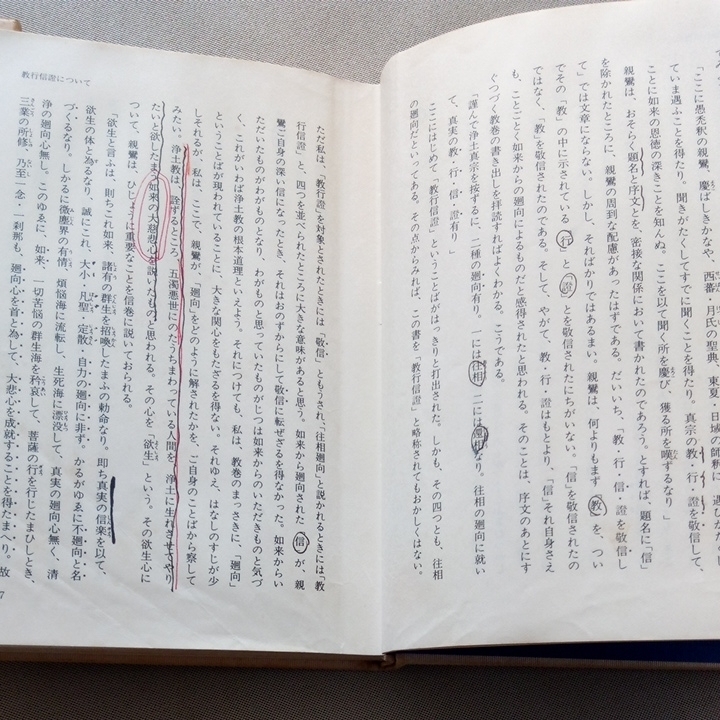 「ここに愚禿釈の親鸞、慶ばしきかなや、西蕃・月氏の聖典、東夏・日域の師釈に、遇ひたく
ていま遇ふことを得たり。聞きがたくしてすでに聞くことを得たり。真宗の教・行・證を敬信して、
ことに如来の恩徳の深きことを知んぬ。ここを以て聞く所を慶び、獲る所を嘆ずるなり」
親鸞は、おそらく題名と序文とを、密接な関係において書かれたのであろう。とすれば、題名に「信」
を除かれたところに、親鸞の周到な配慮があったはずである。だいいち、「教・行・信・證を敬信し
て」では文章にならない。しかし、そればかりではあるまい。親鸞は、何よりもまず「教」を、つい
でその「教」の中に示されている「行」と「證」とを敬信されたにちがいない。「信」を敬信されたの
ではなく、「教」を敬信されたのである。そして、やがて、教・行・證はもとより、「信」それ自身さえ
も、ことごとく如来からの廻向によるものだと感得されたと思われる。そのことは、序文のあとにす
ぐつづく教巻の書き出しを拝読すればよくわかる。こうである。
「謹んで浄土真宗を按ずるに、二種の廻向有り。一には往相、二には還相なり。往相の廻向に就い
て、真実の教・行・信・證有り」
ここにはじめて「教行信證」ということばがはっきりと打出された。しかも、その四つとも、往相
の廻向だというのである。その点からみれば、この書を「教行信證」と略称されてもおかしくはない。
教行信證について
ただ私は、「教行證」を対象とされたときには「敬信」ともうされ、「往相廻向」と説かれるときには「教
行信證」と、四つを並べられたところに大きな意味があると思う。如来から廻向された「信」が、親
鸞ご自身の深い信になったとき、それはおのずからにして敬信に転ぜざるを得なかった。如来からい
ただいたものがわがものとなり、わがものと思っていたものがじつは如来からのいただきものと気づ
く、これがいわば浄土教の根本道理といえよう。それにつけても、私は、教巻のまっさきに、「廻向」
ということばが現われていることに、大きな関心をもたざるを得ない。それゆえ、はなしのすじが少
しそれるが、私は、ここで、親鸞が、「廻向」をどのように解されたかを、ご自身のことばから察して
みたい。浄土教は、詮ずるところ、五濁悪世にのたうちまわっている人間を、浄土に生れさせてやり
たいと欲したまう如来の大慈悲心を説いたものと思われる。その心を「欲生」という。その欲生心に
ついて、親鸞は、ひじょうに重要なことを信巻に説いておられる。
「欲生と言ふは、則ちこれ如来、諸有の群生を招喚したまふの勅命なり。即ち真実の信楽を以て、
欲生の体と為るなり、誠にこれ、大小・凡聖・定散・自力の廻向に非ず。かるがゆゑに不廻向と名
づくるなり。しかるに微塵界の有情、煩悩海に流転し、生死海に漂没して、真実の廻向心無く、清
浄の廻向心無し。このゆゑに、如来、一切苦悩の群生海を矜哀して、菩薩の行を行じたまひしとき、
三業の所修、乃至一念・一刹那も、廻向心を首と為して、大悲心を成就することを得たまへり。故
7